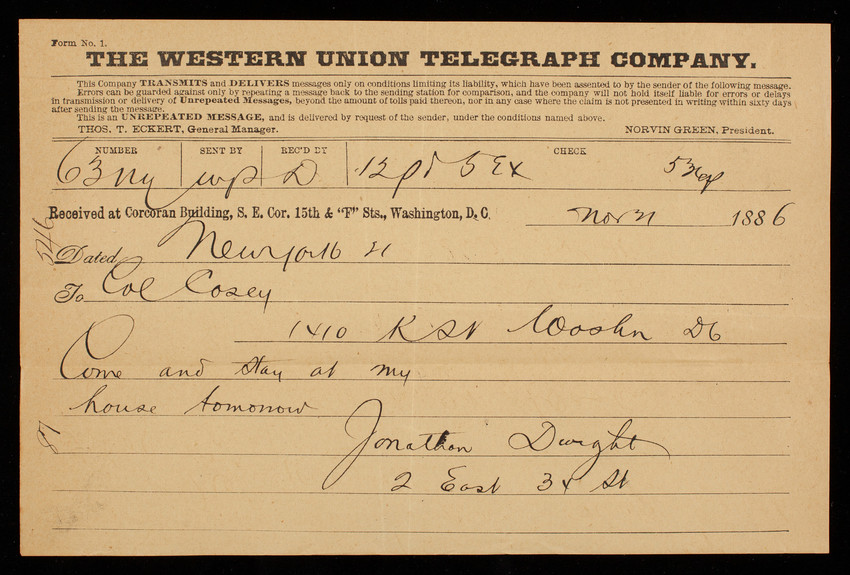 Form No. 1.
THE WESTERN UNION TELEGRAPH COMPANY.
This Company TRANSMITS and DELIVERS messages only on conditions limiting its liability, which have been assented to by the sender of the following message.
Errors can be guarded against only by repeating a message back to the sending station for comparison, and the company will not hold itself liable for errors or delays
in transmission or delivery of Unrepeated Messages, beyond the amount of tolls paid thereon, nor in any case where the claim is not presented in writing within sixty days
after sending the message.
This is an UNREPEATED MESSAGE, and is delivered by request of the sender, under the conditions named above.
THOS. T. ECKERT, General Manager. NORVIN GREEN, President.
NUMBER SENT BY REC'D BY CHECK
63 Ny D 12 pd 5 Ex
Received at Corcoran Building, S. E. Cor. 15th & "F" Sts., Washington, D. C. Nov 21 1886
Dated New York 21
To Col Casey
1410 K St Washn DC
Come and stay at my
house tomorrow
Jonathan Dwight
2 East 34 St
87